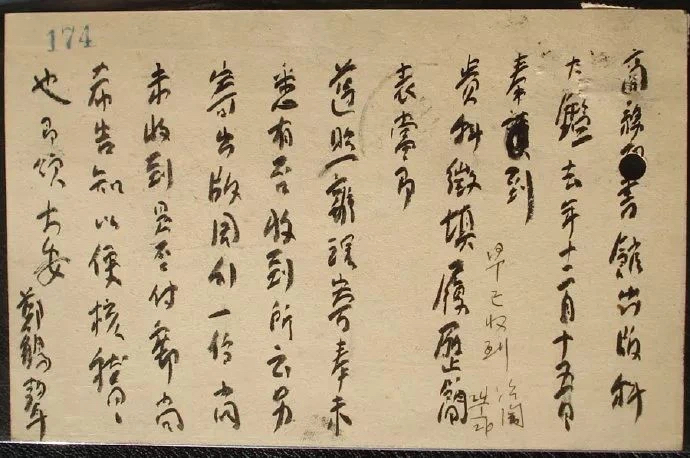 174
商務印書館出版科
大鑒去年十二月十五日
奉到
貴科徵填履歷簡
表當即
遵照辦理寄奉未
悉有否收到所云另
寄出版周刊一份尚
未收到是否付郵尚
希告知以便核
也即頌大安
鄭鶴聲
早已收到